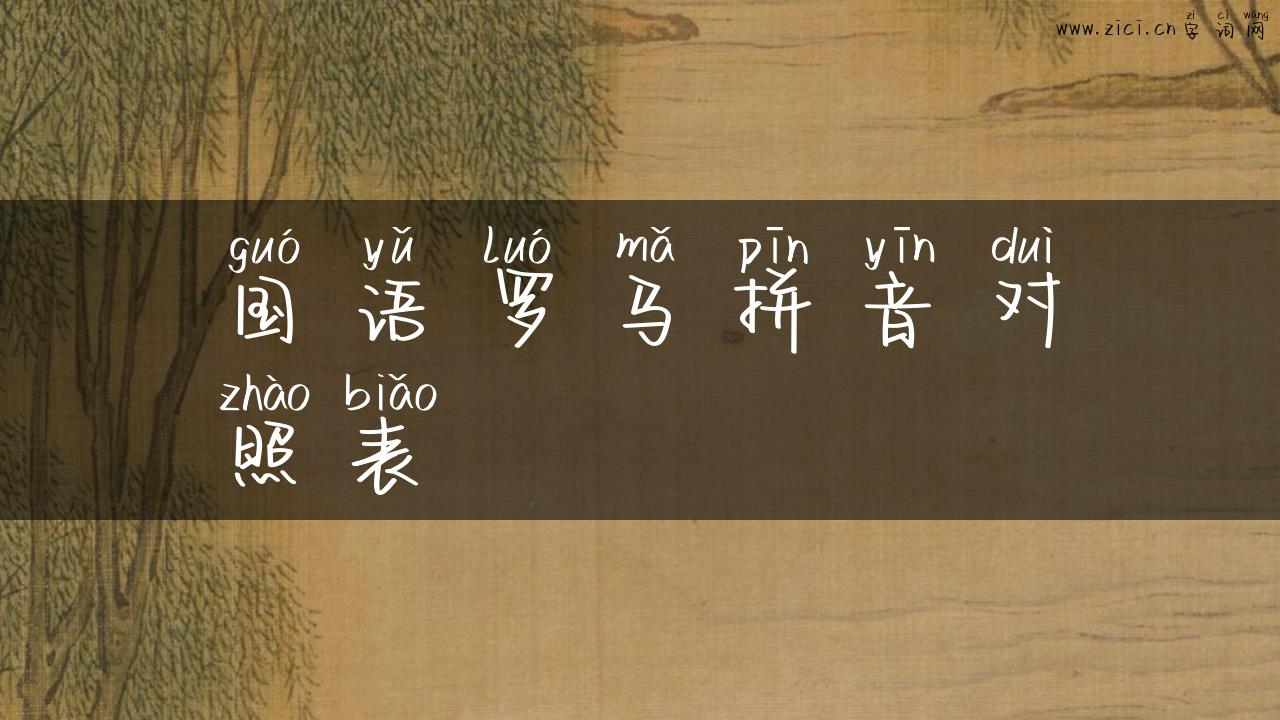 zì cí wǎng
www.zici.cn 字词网
guó yǔ luó mǎ pīn yīn duì
国语罗马拼音对
zhào biǎo
照表